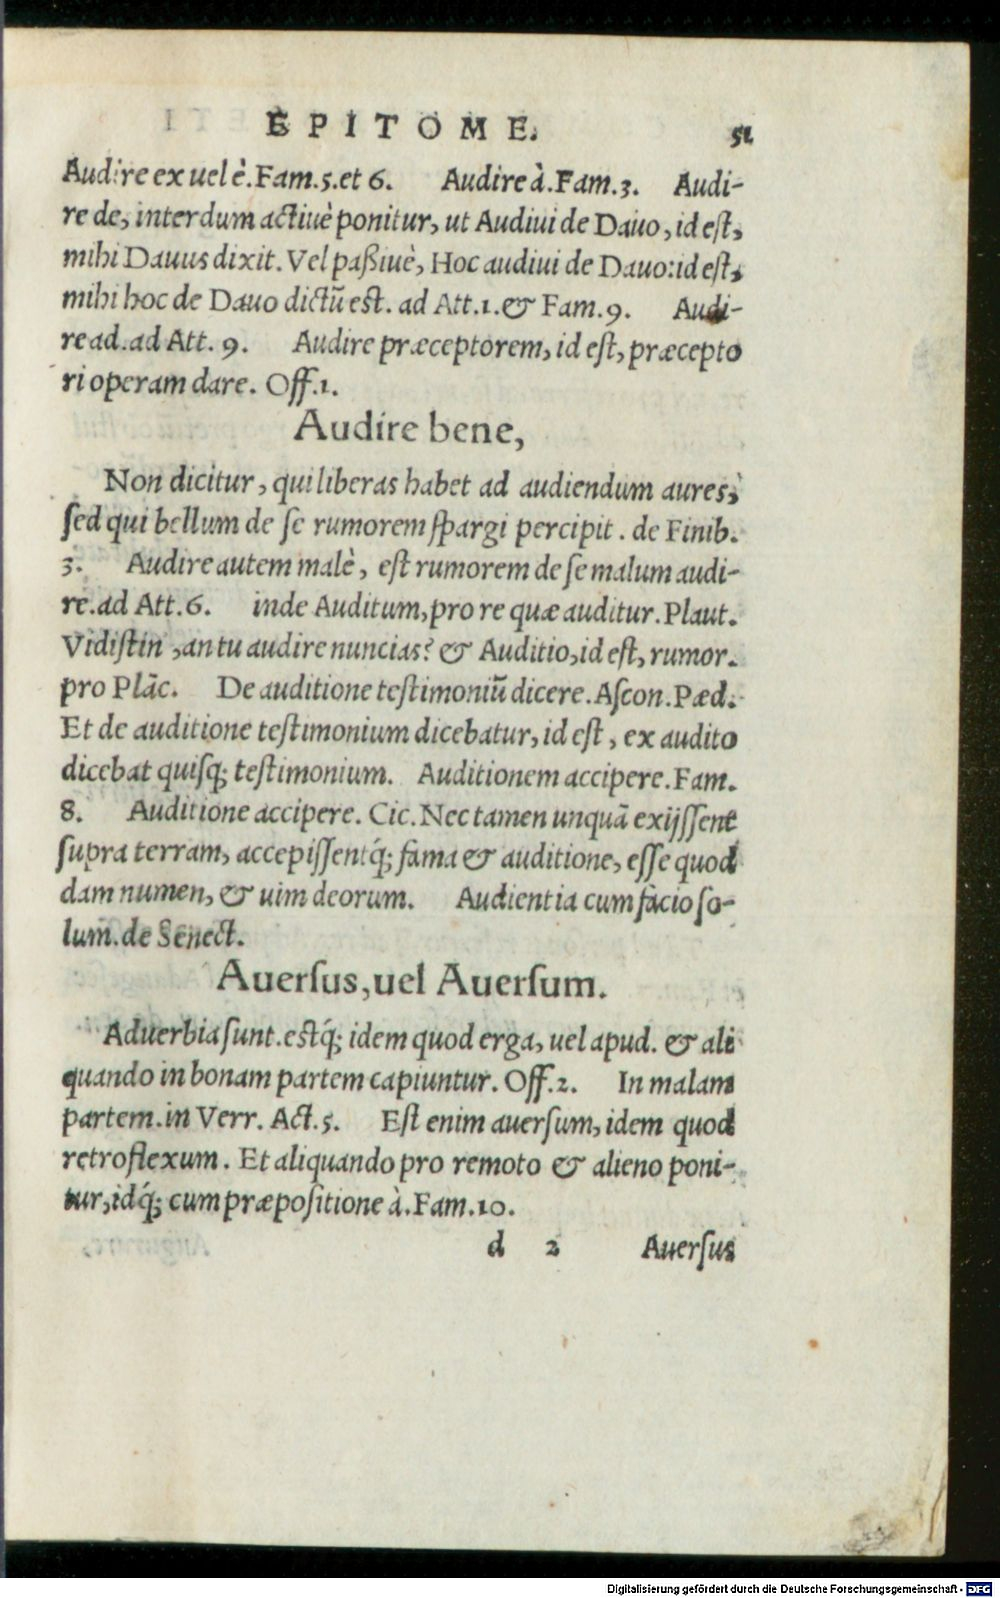 EPITOME. 51
Audire ex uel è. Fam.5.et 6. Audire à. Fam.3. Audi-
re de, interdum actiuè ponitur, ut Audiui de Dauo, id est,
mihi Dauus dixit. Vel paßiuè, Hoc audiui de Dauo: id est,
mihi hoc de Dauo dictũ est. ad Att.1. & Fam.9. Audi-
re ad. ad Att. 9. Audire præceptorem, id est, præcepto
ri operam dare. Off.1.
Audire bene,
Non dicitur, qui liberas habet ad audiendum aures,
sed qui bellum de se rumorem spargi percipit. de Finib.
3. Audire autem malè, est rumorem de se malum audi-
re. ad Att.6. inde Auditum, pro re quæ auditur. Plaut.
Vidistin, an tu audire nuncias? & Auditio, id est, rumor.
pro Plãc. De auditione testimoniũ dicere. Ascon. Pæd.
Et de auditione testimonium dicebatur, id est, ex audito
dicebat quisq; testimonium. Auditionem accipere. Fam.
8. Auditione accipere. Cic. Nec tamen unquã exijssent
supra terram, accepissentq́; fama & auditione, esse quod
dam numen, & uim deorum. Audientia cum facio so-
lum. de Senect.
Auersus, uel Auersum.
Aduerbia sunt. estq́; idem quod erga, uel apud. & ali
quando in bonam partem capiuntur. Off.2. In malam
partem. in Verr. Act.5. Est enim auersum, idem quod
retroflexum. Et aliquando pro remoto & alieno poni-
tur, idq́; cum præpositione à. Fam.10.
d 2 Auersus
Digitalisierung gefördert durch die Deutsche Forschungsgemeinschaft - DFG